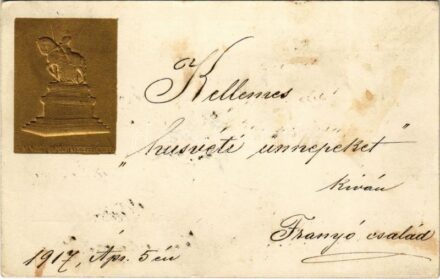 Kellemes
"husvéti ünnepeket"
kiván
Franyó család
1917, Ápr. 5én